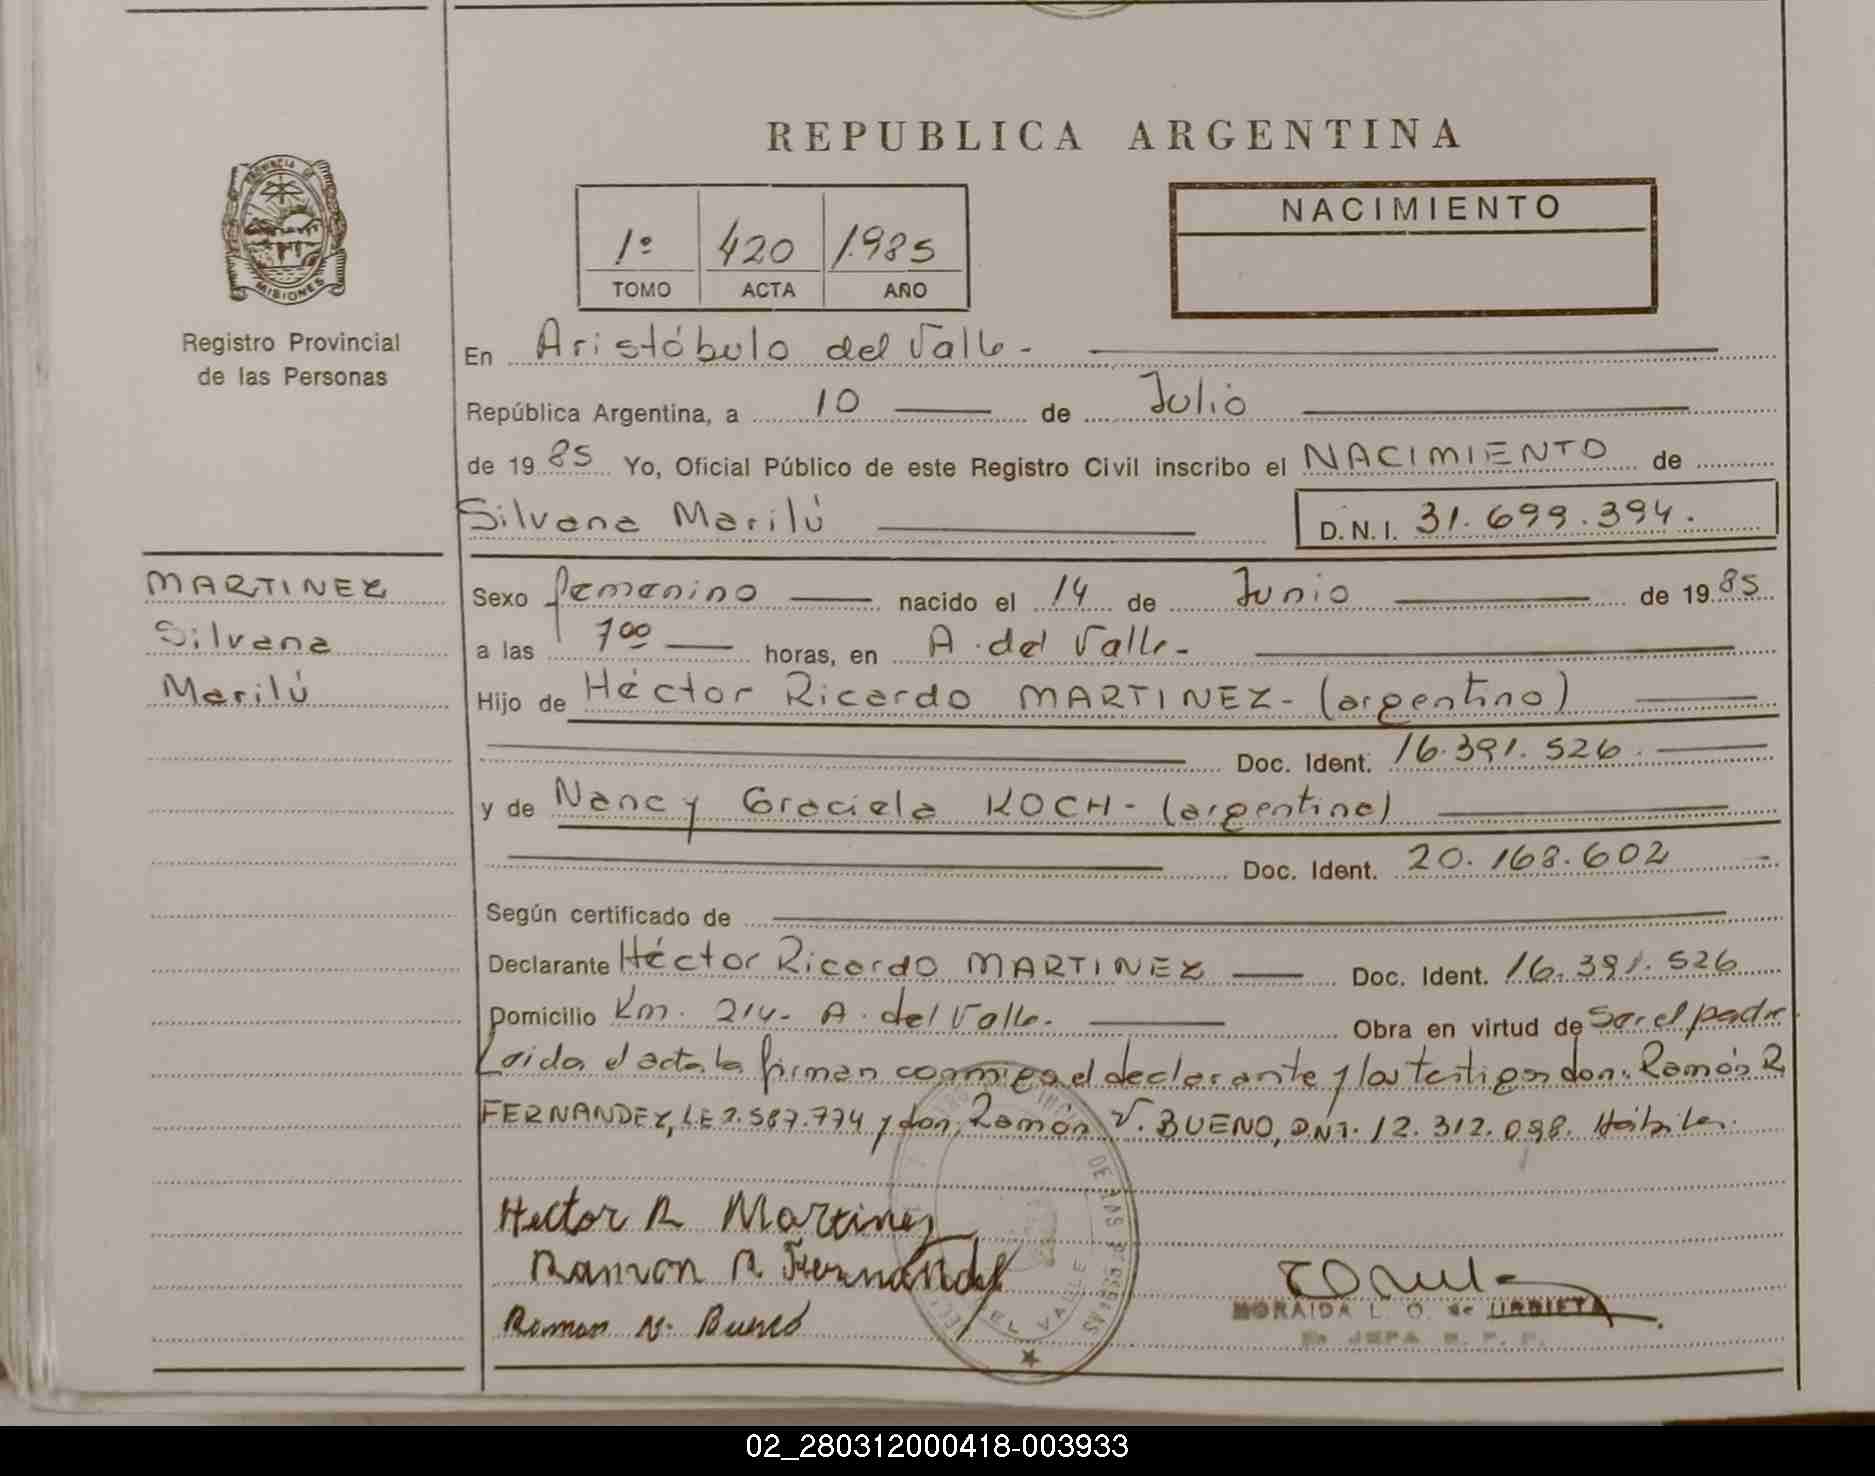 REPUBLICA ARGENTINA
PROVINCIA DE
MISIONES
Registro Provincial
de las Personas
1º 420 1.985
TOMO ACTA AÑO
NACIMIENTO
En Aristóbulo del Valle -
República Argentina, a 10 de Julio
de 19 85 Yo, Oficial Público de este Registro Civil inscribo el NACIMIENTO de
Silvana Marilú D.N.I. 31.699.394.
MARTINEZ
Silvana
Marilú
Sexo femenino nacido el 14 de Junio de 19 85
a las 7 00 horas, en A. del Valle -
Hijo de Héctor Ricardo MARTINEZ - (argentino)
Doc. Ident. 16.391.526.
y de Nancy Graciela KOCH - (argentina)
Doc. Ident. 20.168.602
Según certificado de
Declarante Héctor Ricardo MARTINEZ Doc. Ident. 16.391.526
Domicilio Km. 214 - A. del Valle. Obra en virtud de Ser el padre
Leida el acta la firman conmigo el declarante y los testigos don. Ramón R.
FERNANDEZ, LE 7.587.774 y don, Ramón V. BUENO, DNI. 12.312.098. Hábiles.
Hector R Martinez
Ramon R Fernandez
Ramon V. Bueno
DE LAS PERSONAS
DEL VALLE
MORAIDA L. O. de URRIETA
JEFA R. P. P.
02_280312000418-003933